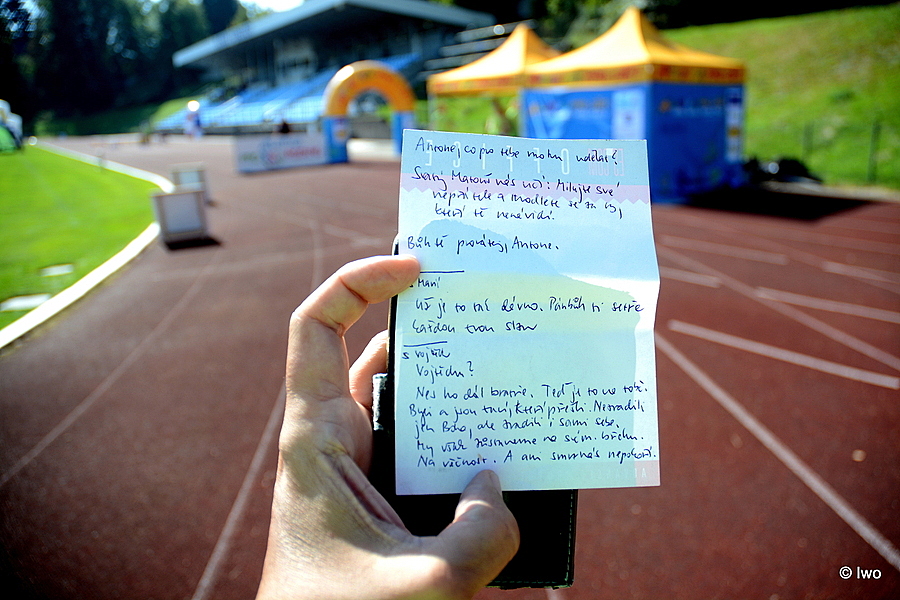 Antone, co pro tebe mohu udělat?
Svatý Matouš nás učí: Milujte své
nepřátele a modlete se za ty,
kteří tě nenávidí.
Bůh tě provázej, Antone.
s Maní
Už je to tak dávno. Pánbůh ti setře
každou tvou slzu
s vojtěch
Vojtěchu?
Nes ho dál bratře. Teď je to na tobě.
Byli a jsou tací, kteří přešli. Nezradili
jen Boha, ale zradili i sami sebe.
My však zůstaneme na svém břehu.
Na věčnost. A ani smrt nás nepokoří.
© Iwo